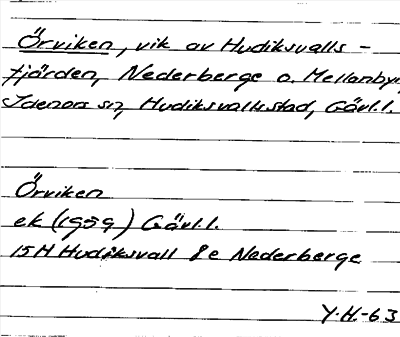 Örviken, vik av Hudiksvalls-
fjärden, Nederberge o. Mellanbyn,
Idenors sn, Hudiksvalls stad, Gävl.l.
Örviken
ek (1959) Gävl.l.
15H Hudiksvall 8e Nederberge
Y.H.-63